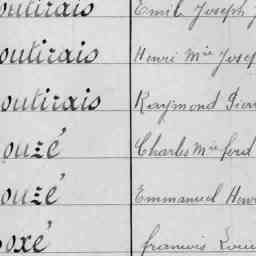 outirais Emil Joseph
outirais Henri Mie Josep
outirais Raymond Pier
ouzé Charles Mie ferd
ouzé Emmanuel Henri
oxé francis Loui